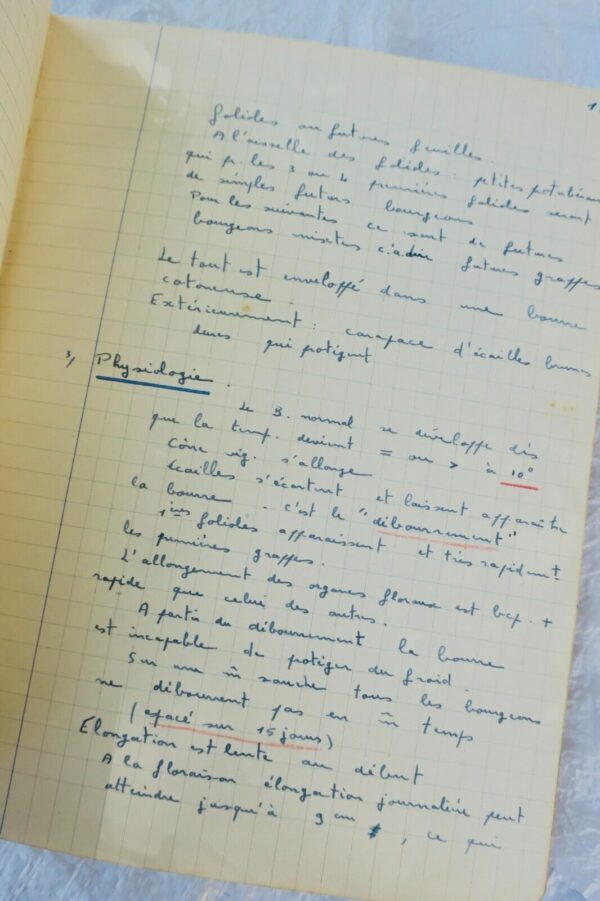 1
folioles ou futures feuilles.
A l'aisselle des folioles : petites protubéran
qui p. les 3 ou 4 premières folioles seront
de simples futurs bourgeons
Pour les suivantes ce sont de futures
bourgeons mixtes c.à.dire futures grappes
Le tout est enveloppé dans une bourre
cotoneuse.
Extérieurement : carapace d'écailles brunes
dures qui protègent
3, Physiologie.
Le B. normal se développe dès
que la temp. devient = ou > à 10°
Cône vég. s'allonge
écailles s'écartent et laissent apparaître
la bourre - c'est le "débourrement"
1ères folioles apparaissent et très rapidemt
les premières grappes.
L'allongement des organes floraux est bcp. +
rapide que celui des autres.
A partir du débourrement la bourre
est incapable de protéger du froid.
Sur une m̂ souche tous les bourgeons
ne débourrent pas en m̂ temps
(espacé sur 15 jours)
Elongation est lente au début
A la floraison élongation journalière peut
atteindre jusqu'à 9 cm, ce qui